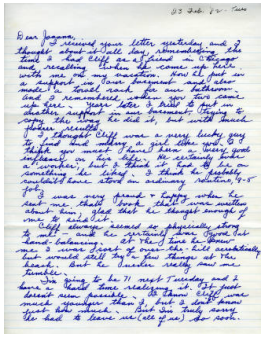 23 Feb. 82 - Tues
Dear Joanna,
I received your letter yesterday and I
thought about it all day, remembering the
time I had Cliff as a friend in Chicago
and recalling when he came up here
with me on my vacation. How he put in
a support in our basement and also
made a towel rack for our bathroom
and I remembered when you two came
up here. Years later I tried to put in
another support in our basement, trying to
copy the way he did it, but with much
poorer results.
I thought Cliff was a very lucky guy
to find and marry a girl like you. I
think you must have been a very good
influence on his life. He certainly was
a worker, but I think it had to be on
something he liked. I think he probably
couldn't have stood an ordinary routine, 9-5
job.
I was very proud & happy when he
sent me that book that was written
about him, glad that he thought enough of
me to send it.
Cliff always seemed so physically strong
to me - and he certainly was good in
hand balancing. At the time he knew
me I was over-the-hill acrobatically
but would still try a few things at the
beach. But he never really saw me
tumble.
I'm going to be 71 next Tuesday and I
have a hard time realizing it. It just
doesn't seem possible. I know Cliff was
much younger than I, but I don't know
just how much. But I'm truly sorry
he had to leave us (all of us) so soon.